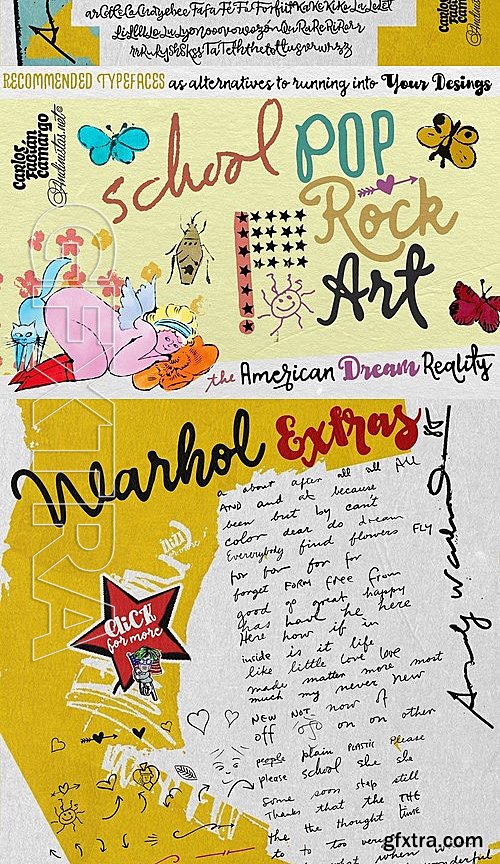 RECOMMENDED TYPEFACES as alternatives to running into Your Desings
carlos
fabian
camargo
Andinistas.net©
School POP
Rock
Art
the American Dream Reality
Warhol Extras
a about after all all All
AND and at because
been but by can't
color dear do dream
Everybody find flowers FLY
for for for for
forget FORM FREE From
good go great happy
has have he here
Here how if in
inside is it life
like little love love
made matter more most
much my never new
NEW NOT now of
off on on other
people plain PLASTIC Please
please school she she
some soon stop still
Thanks that the THE
the the thought time
to to too very
CLICK
for more
Andy Warhol
GFXTRA
gfxtra.com